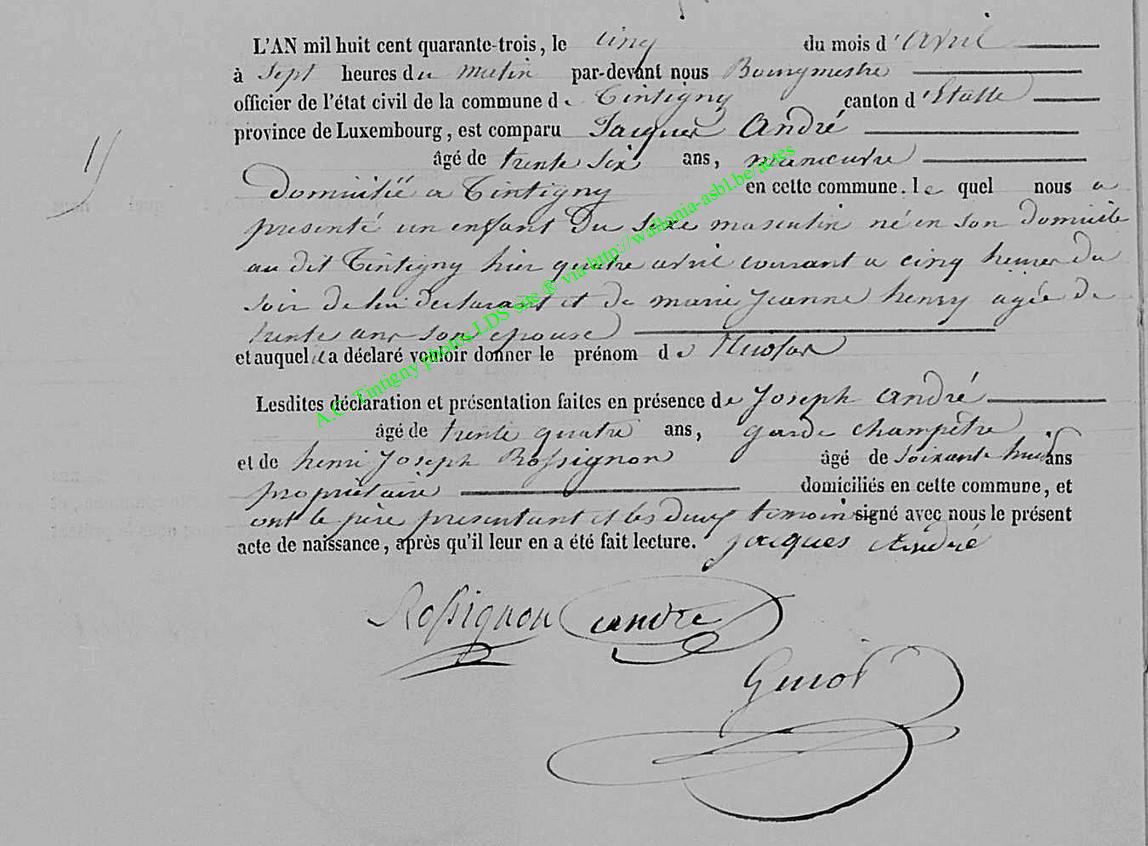 L'AN mil huit cent quarante-trois, le cinq du mois d'avril
à sept heures du matin par-devant nous Bourgmestre
officier de l'état civil de la commune de Tintigny canton d'Etalle
province de Luxembourg, est comparu Jacques André
1
âgé de trente six ans, manœuvre
domicilié a Tintigny en cette commune. le quel nous a
presenté un enfant du sexe masculin né en son domicile
au dit Tintigny hier quatre avril courant a cinq heures du
soir de lui declarant et de marie Jeanne henry agée de
trente ans son epouse
et auquel il a déclaré vouloir donner le prénom de Nicolas
Lesdites déclaration et présentation faites en présence de Joseph André
âgé de trente quatre ans, garde champêtre
et de henri Joseph Rossignon âgé de soixante huit ans
propriétaire domiciliés en cette commune, et
ont le père presentant et les deux temoins signé avec nous le présent
acte de naissance, après qu'il leur en a été fait lecture. jacques André
Rossignon andre
A.C. Tintigny photos LDS site ® via http://wallonia-asbl.be/actes